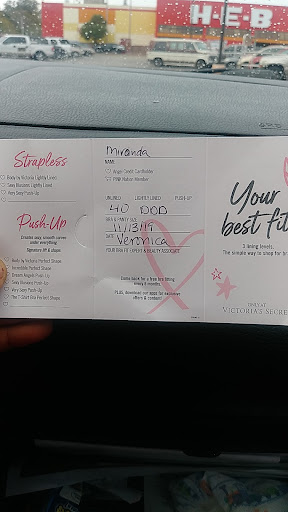 H-E-B
Strapless
Body by Victoria Lightly Lined
Sexy Illusions Lightly Lined
Very Sexy Push-Up
Push-Up
Creates sexy, smooth curves
under everything!
Signature lift & shape.
Body by Victoria Perfect Shape
Incredible Perfect Shape
Dream Angels Push-Up
Sexy Illusions Push-Up
Very Sexy Push-Up
The T-Shirt Bra Perfect Shape
Miranda
NAME
Angel Credit Cardholder
PINK Nation Member
UNLINED LIGHTLY LINED PUSH-UP
40 DDD
BRA & PANTY SIZE
11/13/19
DATE
Veronica
YOUR BRA FIT EXPERT & BEAUTY ASSOCIATE
Come back for a free bra fitting
every 6 months.
PLUS, download our apps for exclusive
offers & content!
Your
best fit
3 lining levels.
The simple way to shop for
ONLY AT
VICTORIA'S SECRE